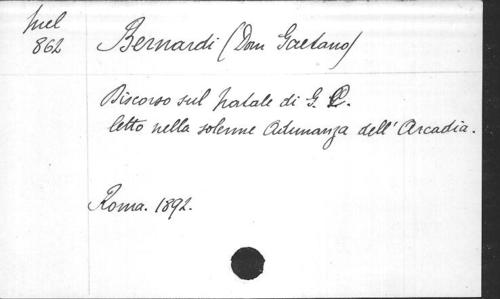 Mel
862
Bernardi (Dom Gaetano)
Discorso sul Natale di G. C.
letto nella solenne Adunanza dell' Arcadia.
Roma. 1892.